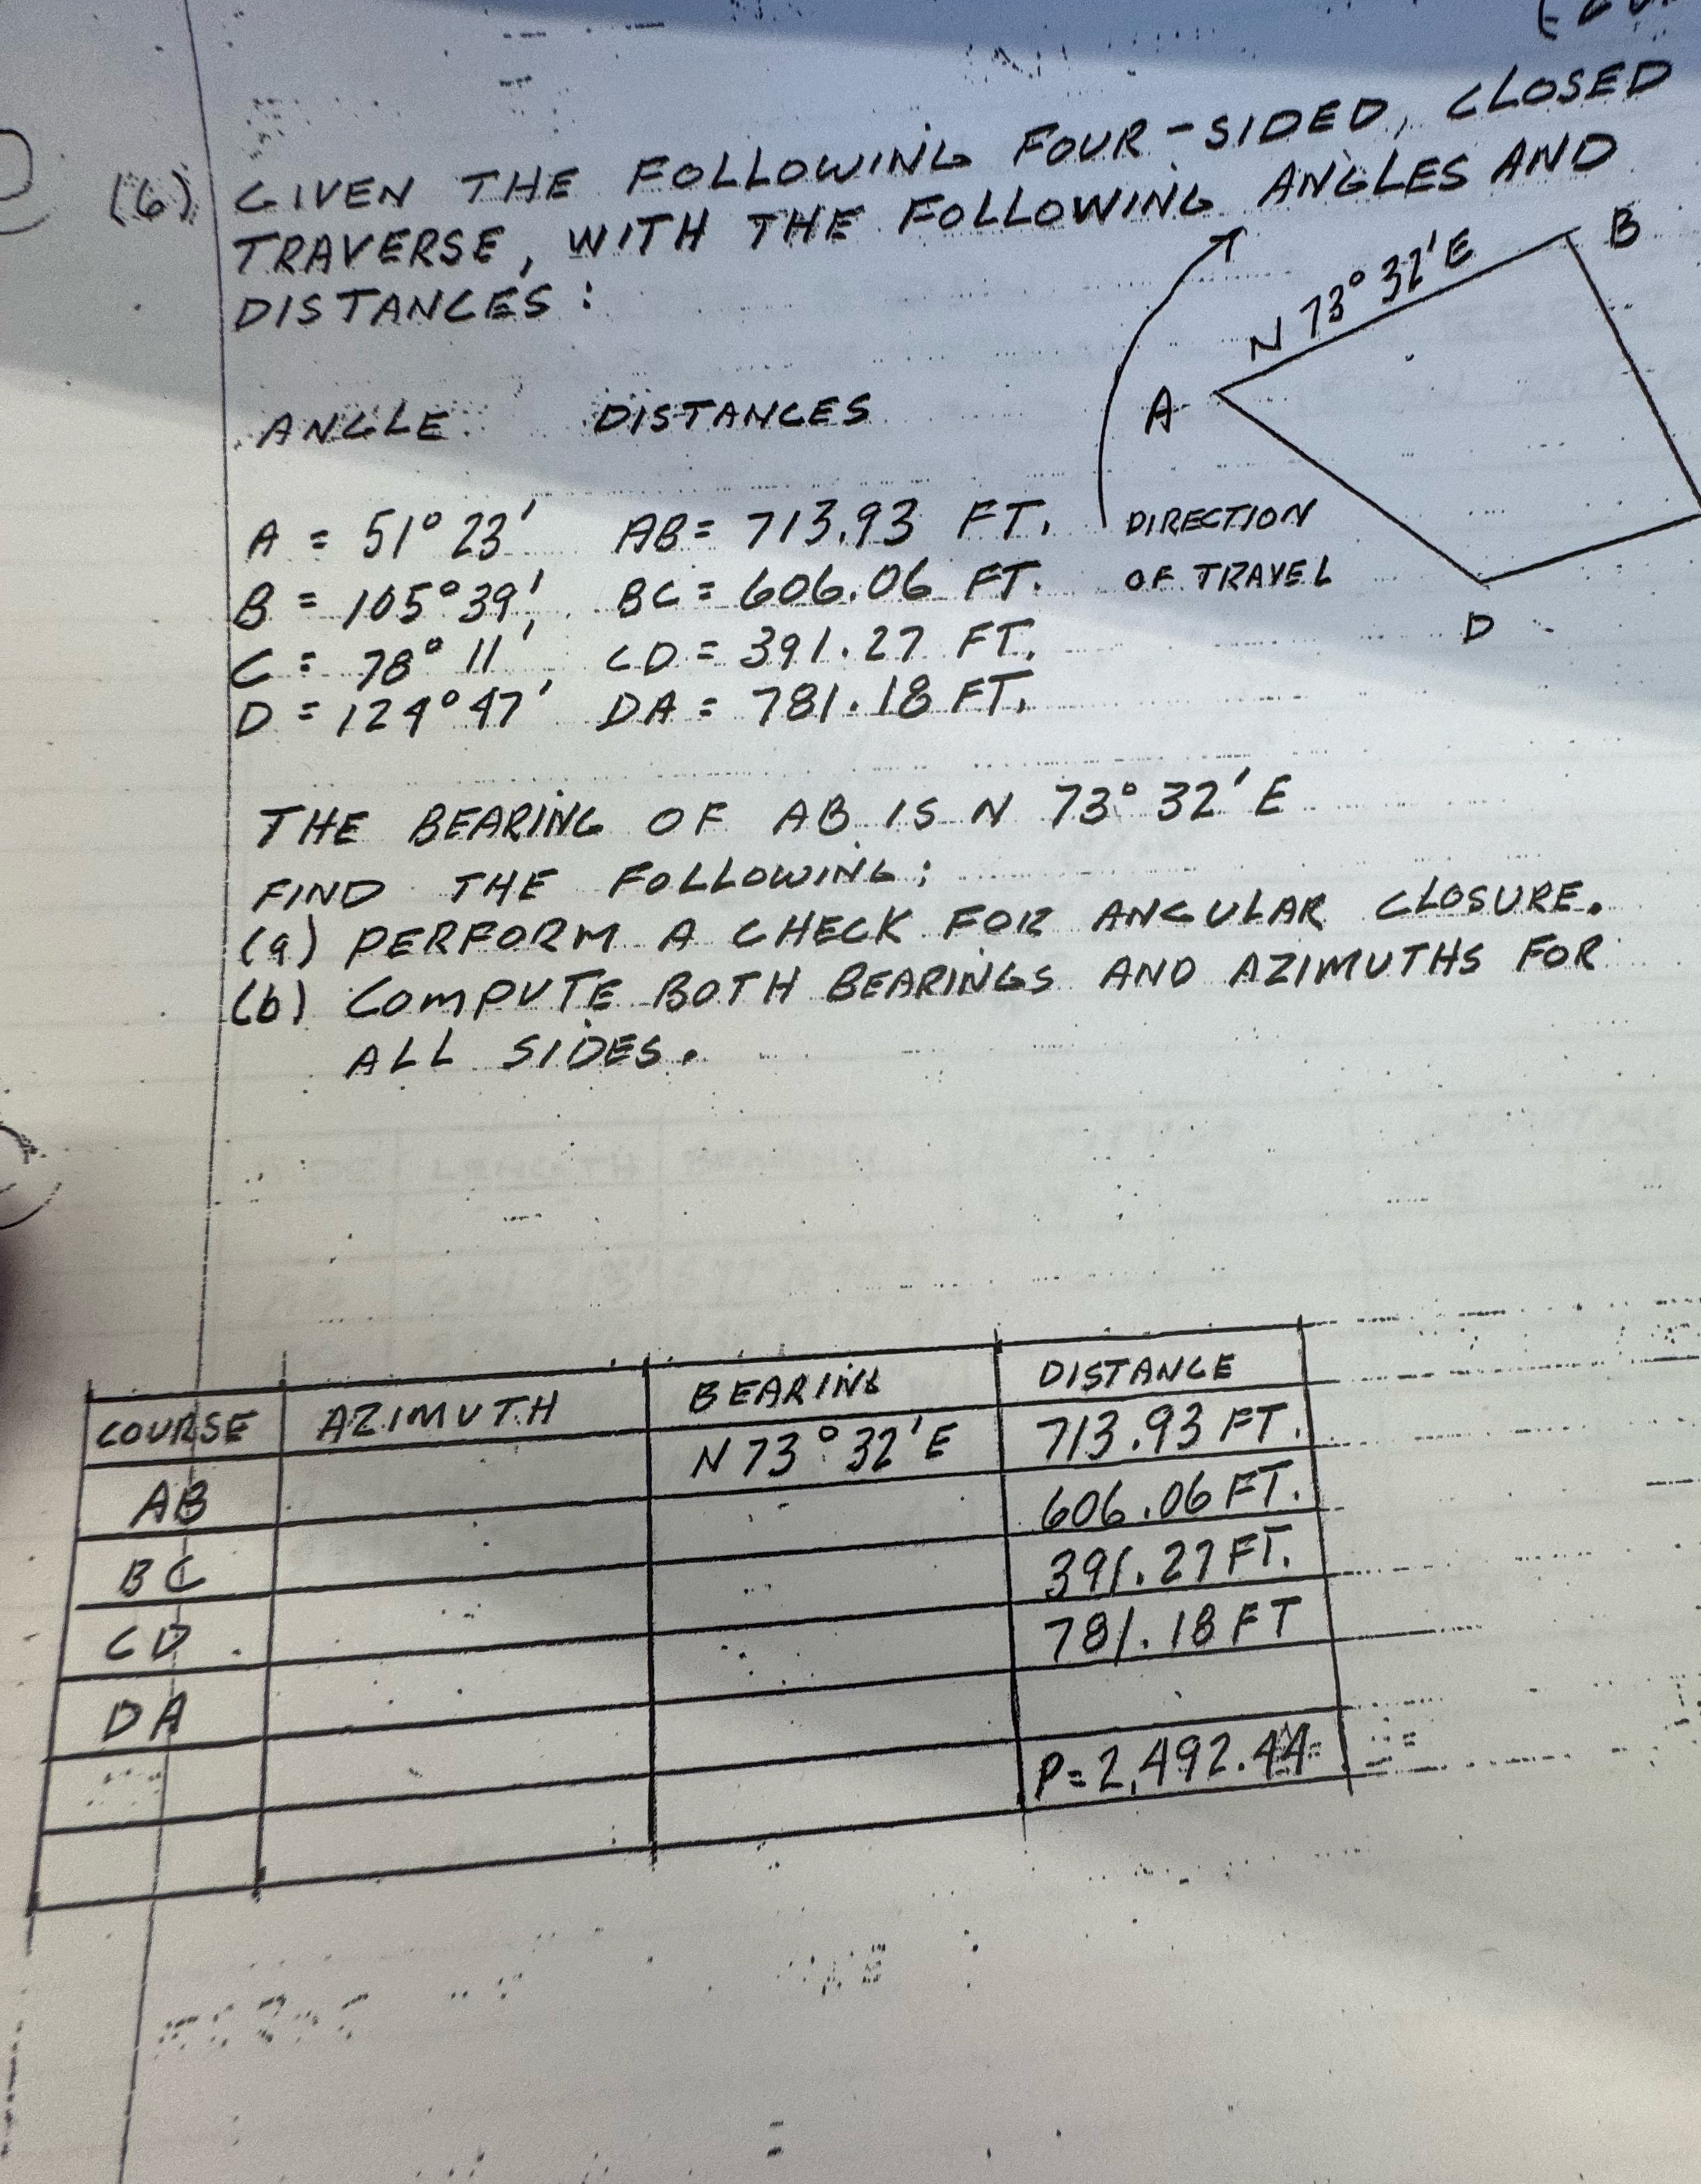 (6) GIVEN THE FOLLOWING FOUR-SIDED, CLOSED
TRAVERSE, WITH THE FOLLOWING ANGLES AND
DISTANCES:
B
N 73° 32' E
A
ANGLE DISTANCES
A = 51° 23' AB = 713.93 FT. DIRECTION
B = 105° 39' BC = 606.06 FT. OF TRAVEL
C = 78° 11' CD = 391.27 FT. D
D = 124° 47' DA = 781.18 FT.
THE BEARING OF AB IS N 73° 32' E
FIND THE FOLLOWING:
(a) PERFORM A CHECK FOR ANGULAR CLOSURE.
(b) COMPUTE BOTH BEARINGS AND AZIMUTHS FOR
ALL SIDES.
COURSE AZIMUTH BEARING DISTANCE
AB N 73° 32' E 713.93 FT.
BC 606.06 FT.
CD 391.27 FT.
DA 781.18 FT
P = 2,492.44